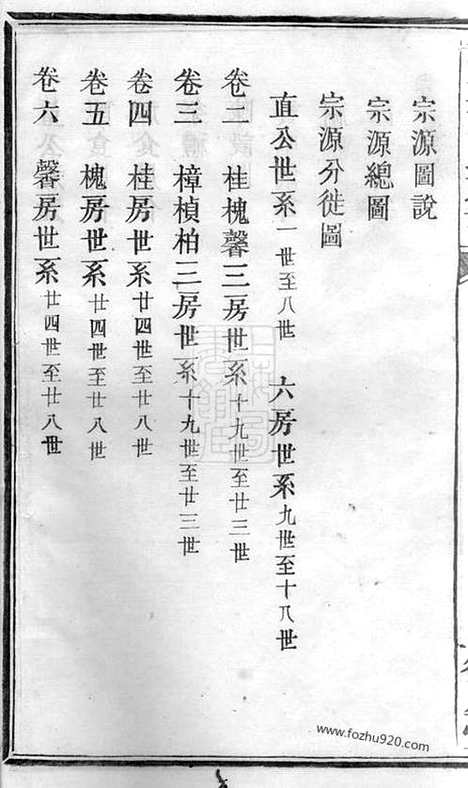 宗源圖說
宗源總圖
宗源分徙圖
直公世系一世至八世　六房世系九世至十八世
卷二　桂槐馨三房世系十九世至廿三世
卷三　樟楨柏三房世系十九世至廿三世
卷四　桂房世系廿四世至廿八世
卷五　槐房世系廿四世至廿八世
卷六　馨房世系廿四世至廿八世
www.fozhu920.com